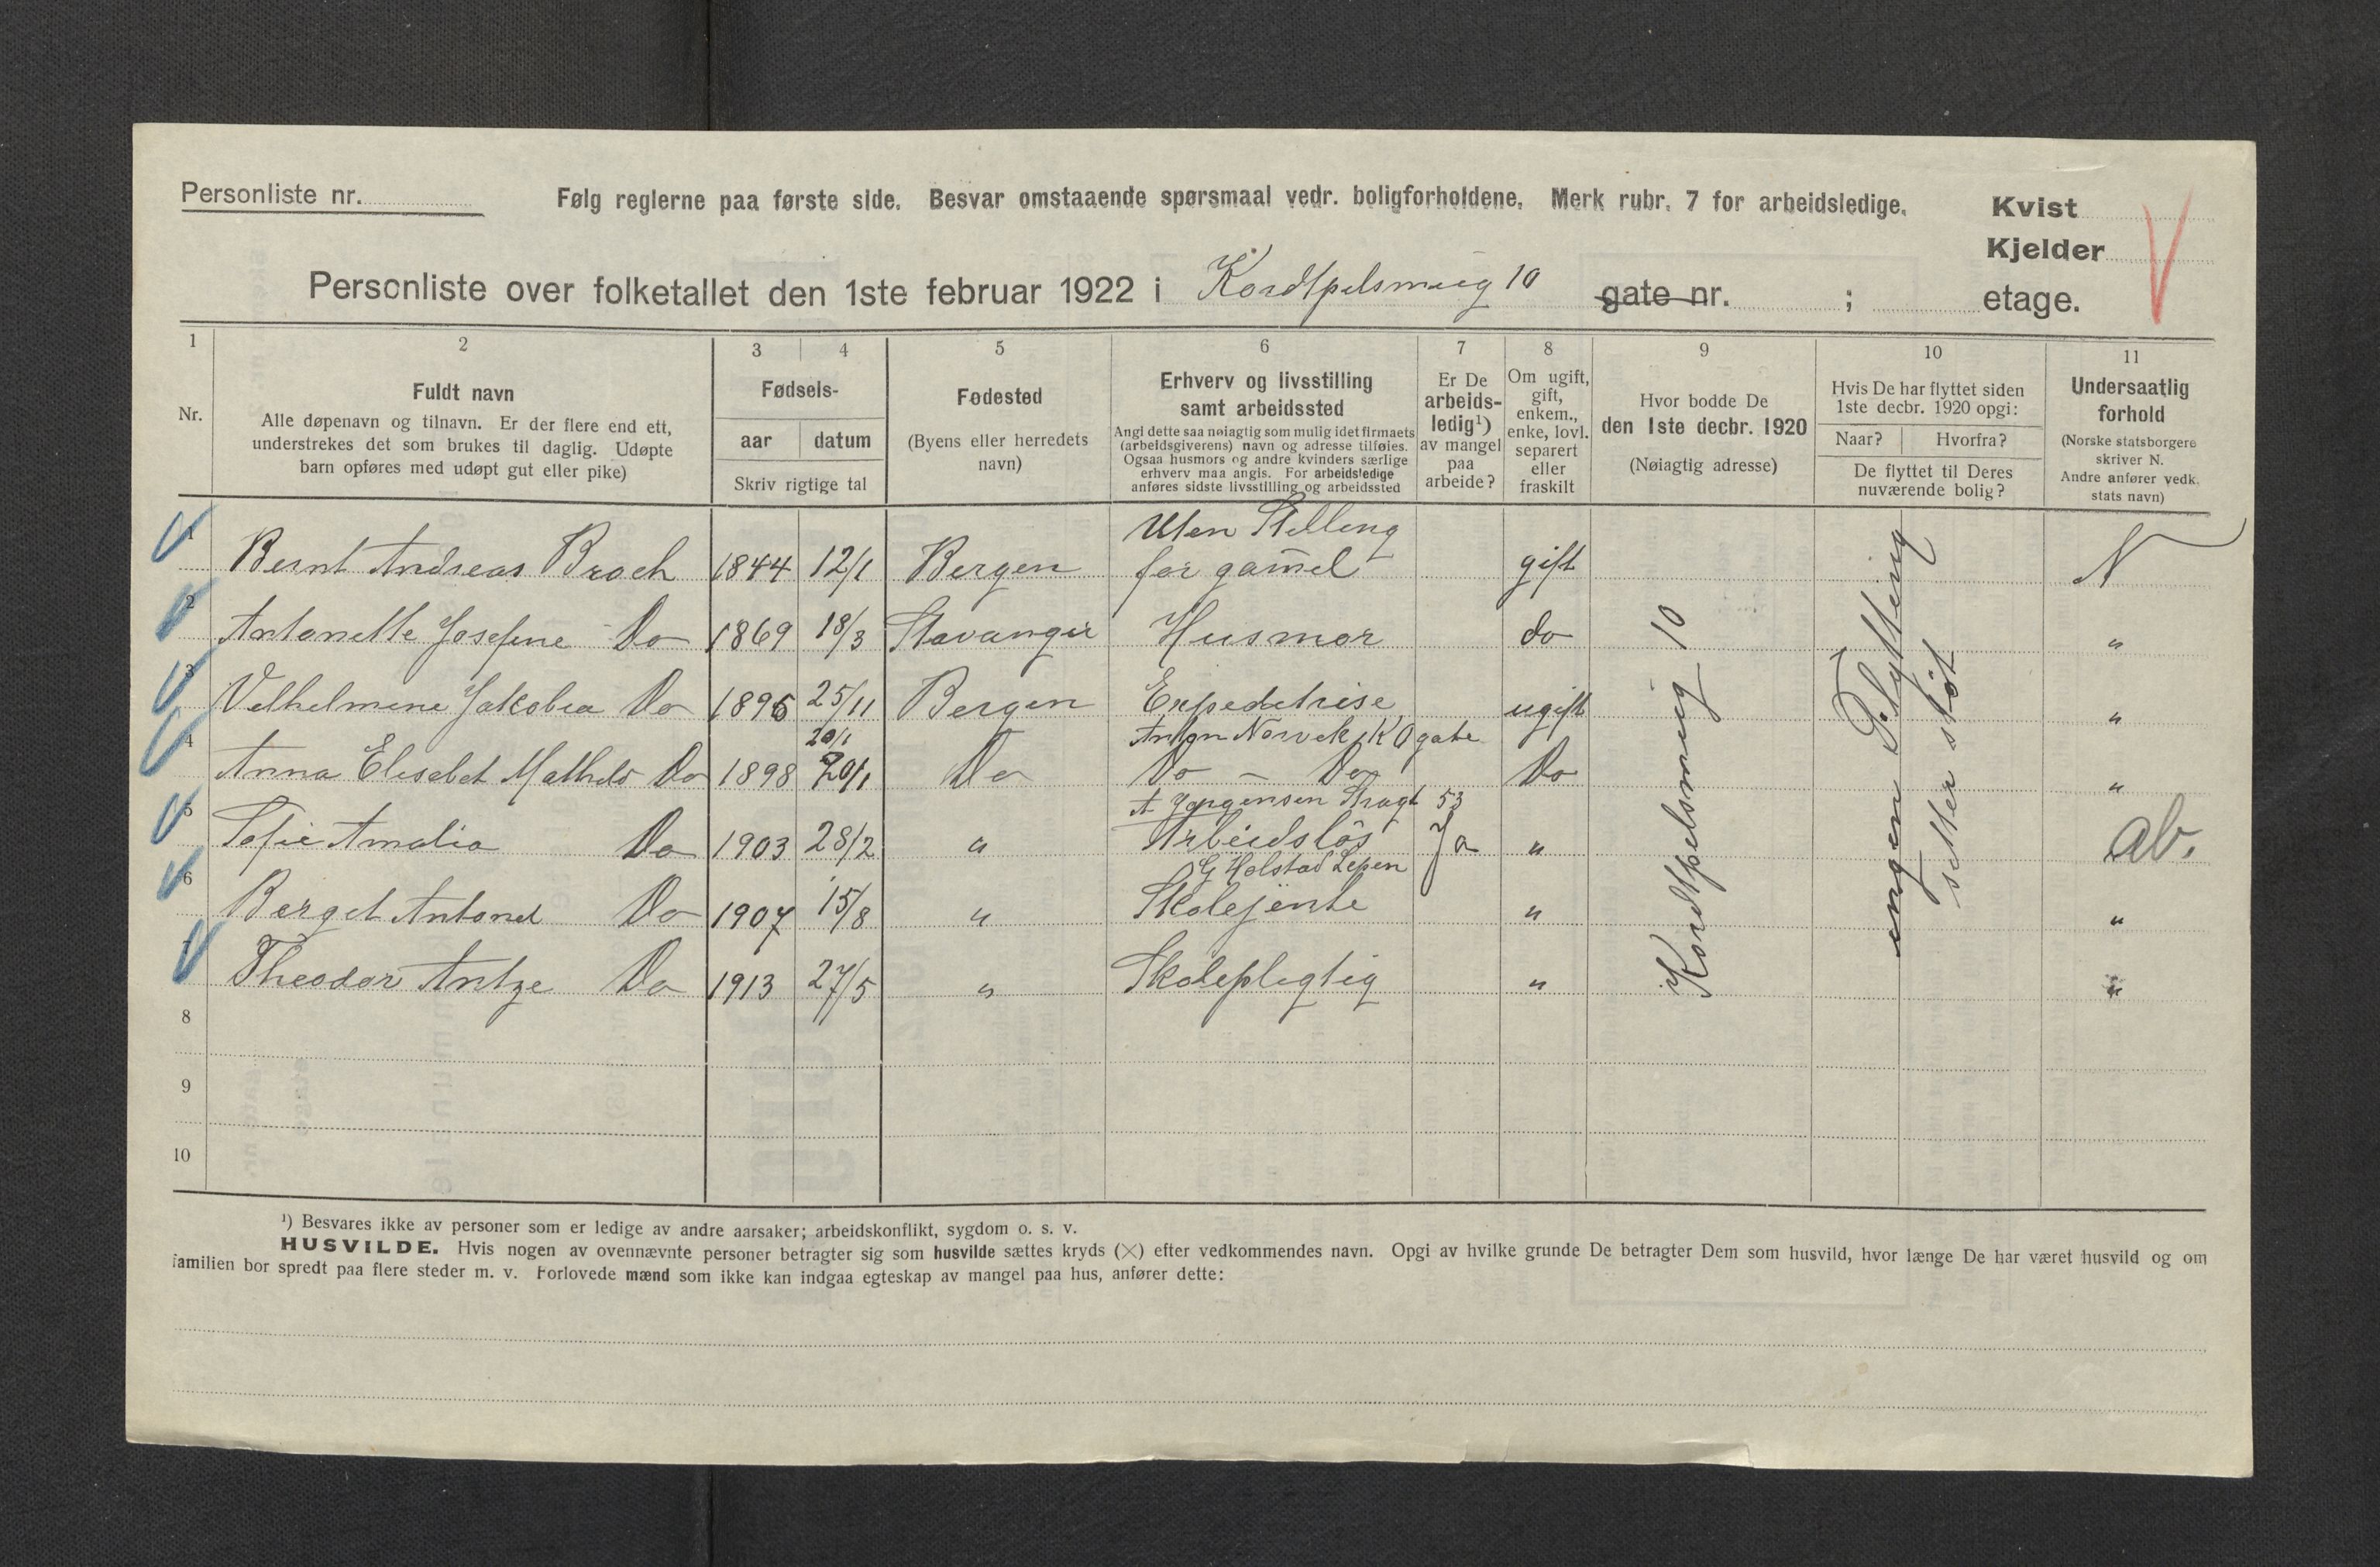 Personliste nr.
Følg reglerne paa første side. Besvar omstaaende spørsmaal vedr. boligforholdene. Merk rubr. 7 for arbeidsledige.
Kvist
Kjelder
etage.
Personliste over folketallet den 1ste februar 1922 i Kordtpelsmug 10 gate nr. ;
1 2 3 4 5 6 7 8 9 10 11
Nr.
Fuldt navn
Alle døpenavn og tilnavn. Er der flere end ett,
understrekes det som brukes til daglig. Udøpte
barn opføres med udøpt gut eller pike)
Fødsels-
aar datum
Skriv rigtige tal
Fødested
(Byens eller herredets
navn)
Erhverv og livsstilling
samt arbeidssted
Angi dette saa nøiagtig som mulig idet firmaets
(arbeidsgiverens) navn og adresse tilføies.
Ogsaa husmors og andre kvinders særlige
erhverv maa angis. For arbeidsledige
anføres sidste livsstilling og arbeidssted
Er De
arbeids-
ledig¹)
av mangel
paa
arbeide?
Om ugift,
gift,
enkem.,
enke, lovl.
separert
eller
fraskilt
Hvor bodde De
den 1ste decbr. 1920
(Nøiagtig adresse)
Hvis De har flyttet siden
1ste decbr. 1920 opgi:
Naar? Hvorfra?
De flyttet til Deres
nuværende bolig?
Undersaatlig
forhold
(Norske statsborgere
skriver N.
Andre anfører vedk.
stats navn)
Uten Stilling
1 Bernt Andreas Broch 1844 12/1 Bergen for gam̄el gift N
2 Antonette Josefine Do 1869 18/3 Stavanger Husmor do "
3 Vilhelmine Jakobea Do 1896 25/11 Bergen Expeditrise ugift "
20/1 Anton Norvek, K O gate
4 Anna Elisabet Mathild Do 1898 20/1 Do Do – Do Do "
A Jørgensen Stragt 53
5 Sofie Amalia Do 1903 28/2 " Arbeidsløs Ja " ab.
G Holstad Lepen
6 Berget Antonet Do 1907 15/8 " Skolejente " "
7 Theodor Antze Do 1913 27/5 " Skolepligtig " "
Kordtpelsmug 10
ingen Flytting
siden
8
9
10
¹) Besvares ikke av personer som er ledige av andre aarsaker; arbeidskonflikt, sygdom o. s. v.
HUSVILDE. Hvis nogen av ovennævnte personer betragter sig som husvilde sættes kryds (×) efter vedkommendes navn. Opgi av hvilke grunde De betragter Dem som husvild, hvor længe De har været husvild og om
familien bor spredt paa flere steder m. v. Forlovede mænd som ikke kan indgaa egteskap av mangel paa hus, anfører dette: